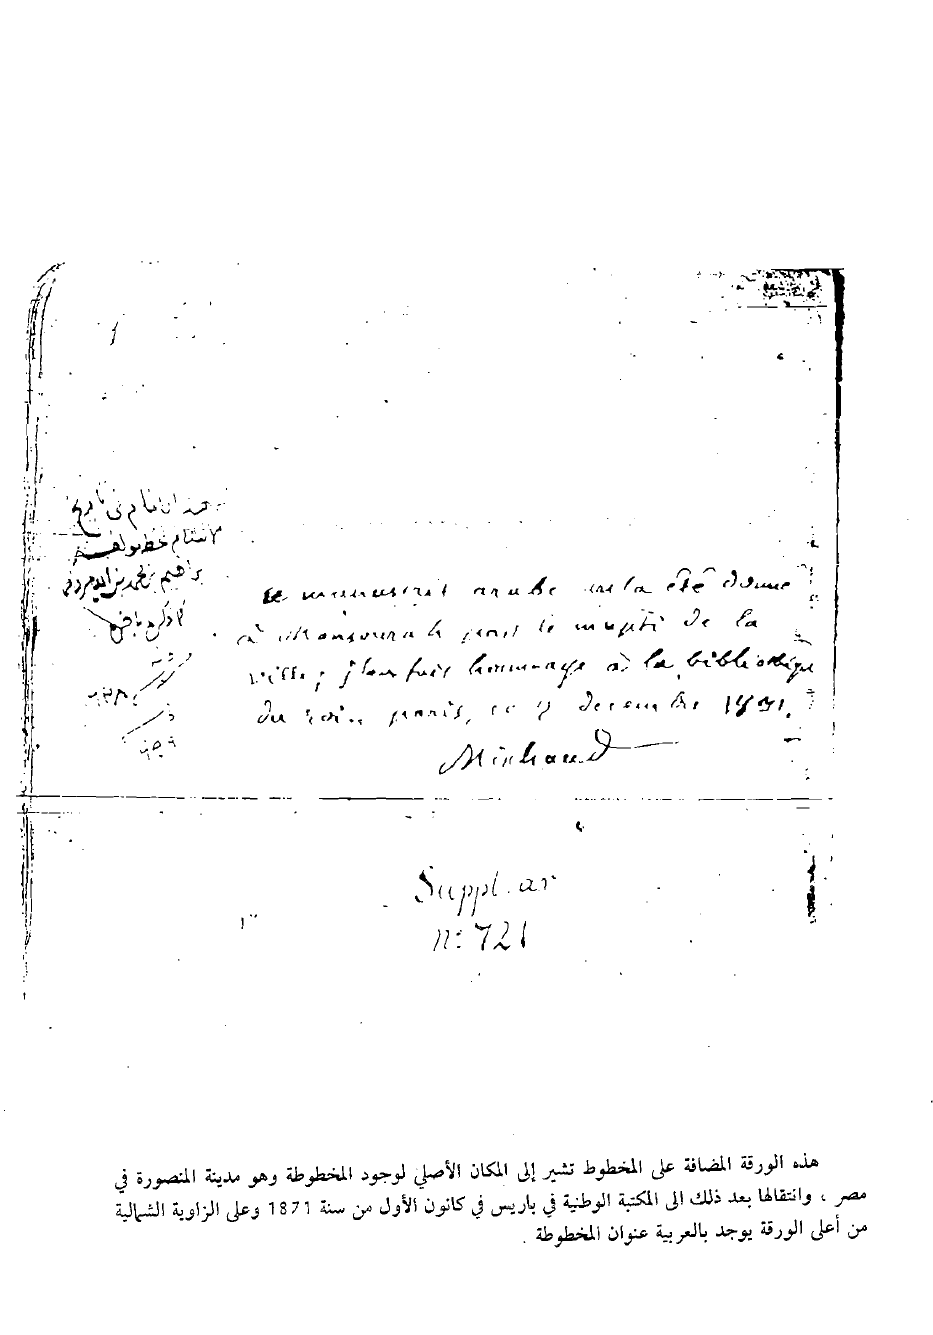 في تاريخ
خط مولفه
براهيم بن محمد بن
٩٣٨
٩٥٩
Ce manuscrit arabe m'a été donné
à Mansourah par le muphti de la
ville; j'en fais hommage à la bibliothèque
du roi. paris, ce decembre
Michaud
Suppl. ar
n.° 721
هذه الورقة المضافة على المخطوط تشير إلى المكان الأصلي لوجود المخطوطة وهو مدينة المنصورة في
مصر ، وانتقالها بعد ذلك الى المكتبة الوطنية في باريس في كانون الأول من سنة 1871 وعلى الزاوية الشمالية
من أعلى الورقة يوجد بالعربية عنوان المخطوطة .